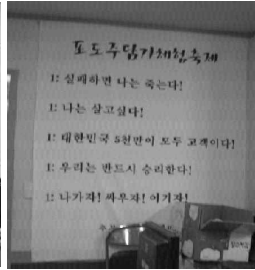 포도주담기체험축제
1: 실패하면 나는 죽는다!
1: 나는 살고싶다!
1: 대한민국 5천만이 모두 고객이다!
1: 우리는 반드시 승리한다!
1: 나가자! 싸우자! 이기자!